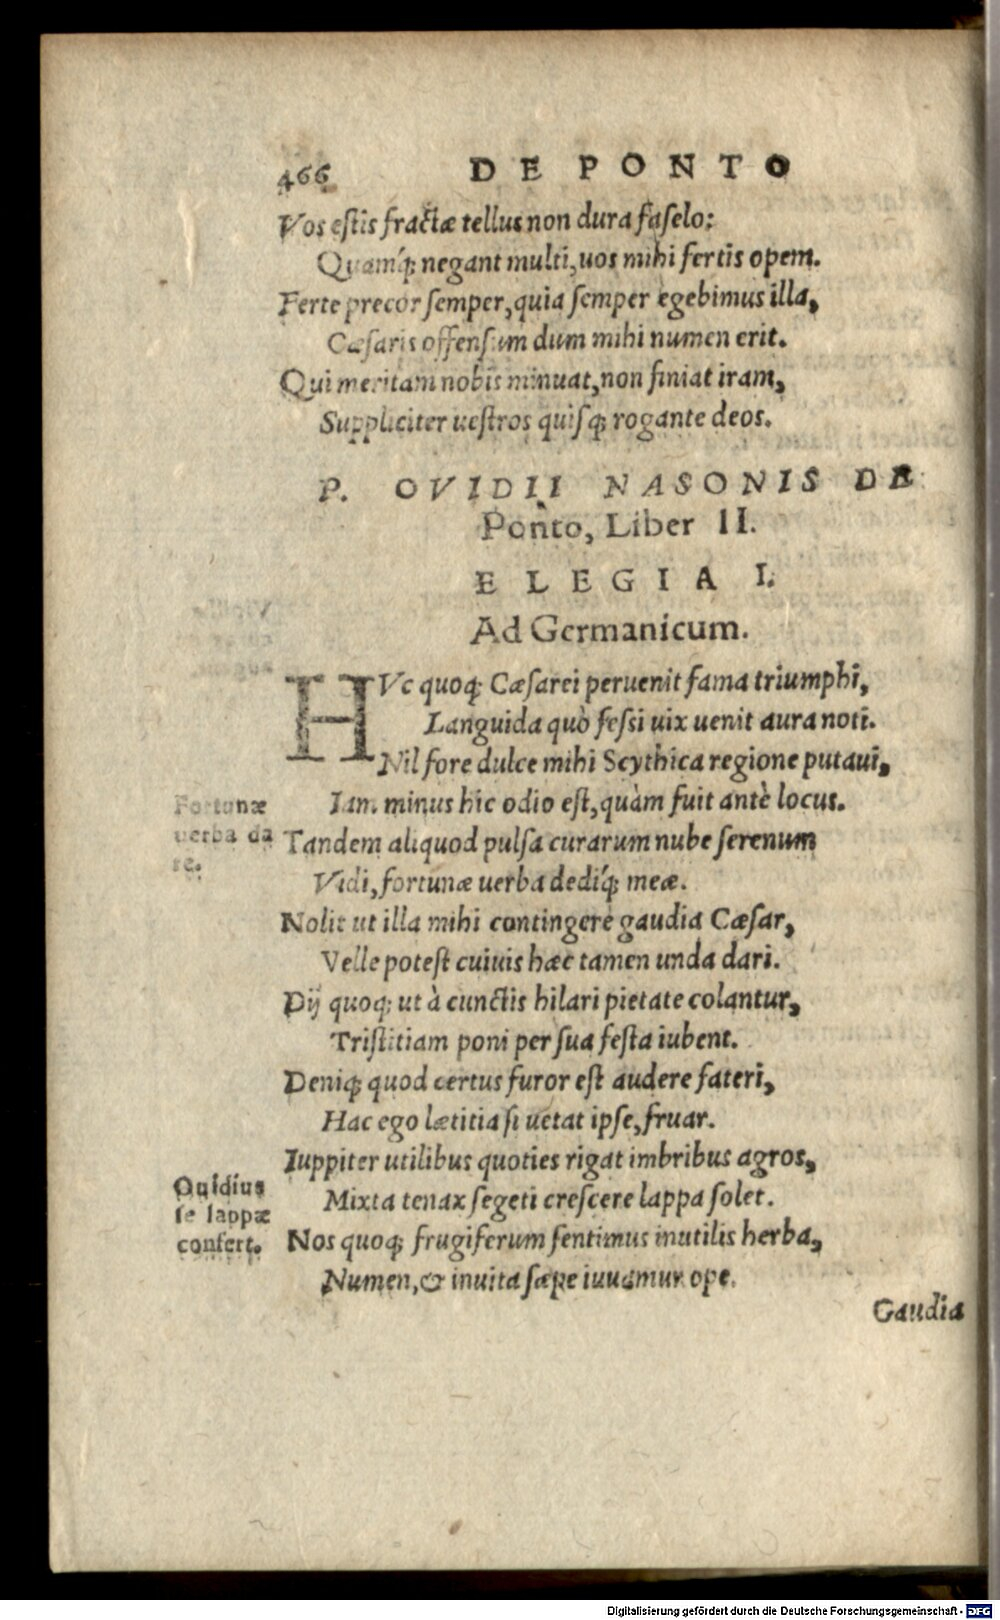 466 DE PONTO
Vos estis fractæ tellus non dura faselo:
Quamq́; negant multi, uos mihi fertis opem.
Ferte precor semper, quia semper egebimus illa,
Cæsaris offensum dum mihi numen erit.
Qui meritam nobis minuat, non finiat iram,
Suppliciter uestros quisq; rogante deos.
P. OVIDII NASONIS DE
Ponto, Liber II.
ELEGIA I.
Ad Germanicum.
HVc quoq; Cæsarei peruenit fama triumphi,
Languida quò fessi uix uenit aura noti.
Nil fore dulce mihi Scythica regione putaui,
Iam minus hic odio est, quàm fuit antè locus.
Fortunæ
uerba da
re.
Tandem aliquod pulsa curarum nube serenum
Vidi, fortunæ uerba dediq́; meæ.
Nolit ut illa mihi contingere gaudia Cæsar,
Velle potest cuiuis hæc tamen unda dari.
Dij quoq; ut à cunctis hilari pietate colantur,
Tristitiam poni per sua festa iubent.
Deniq; quod certus furor est audere fateri,
Hac ego lætitia si uetat ipse, fruar.
Iuppiter utilibus quoties rigat imbribus agros,
Mixta tenax segeti crescere lappa solet.
Ouidius
se lappæ
confert.
Nos quoq; frugiferum sentimus inutilis herba,
Numen, & inuita sæpe iuuamur ope.
Gaudia
Digitalisierung gefördert durch die Deutsche Forschungsgemeinschaft - DFG